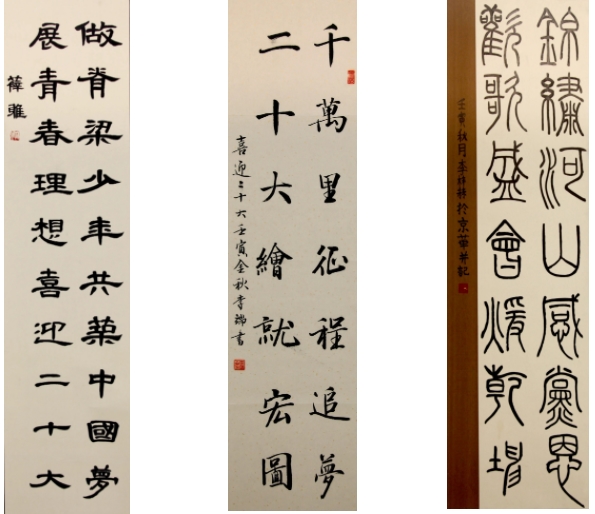 做脊梁少年共築中國夢
展青春理想喜迎二十大
千萬里征程追夢
二十大繪就宏圖
喜迎二十大壬寅金秋李瑞書
錦繡河山感黨恩
歡歌盛會煖乾坤
壬寅秋月李於京華並記